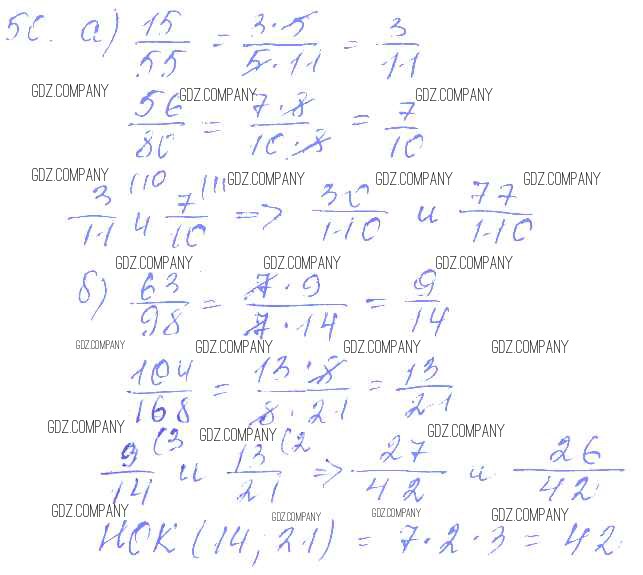 50. а) 15/55 = 3·5/5·11 = 3/11
GDZ.COMPANY GDZ.COMPANY GDZ.COMPANY
56/80 = 7·8/10·8 = 7/10
GDZ.COMPANY GDZ.COMPANY GDZ.COMPANY GDZ.COMPANY
3/11 (10 и 7/10 (11 => 30/110 и 77/110
GDZ.COMPANY GDZ.COMPANY GDZ.COMPANY
б) 63/98 = 7·9/7·14 = 9/14
GDZ.COMPANY GDZ.COMPANY GDZ.COMPANY GDZ.COMPANY
104/168 = 13·8/8·21 = 13/21
GDZ.COMPANY GDZ.COMPANY GDZ.COMPANY
9/14 (3 и 13/21 (2 => 27/42 и 26/42
GDZ.COMPANY GDZ.COMPANY GDZ.COMPANY GDZ.COMPANY
НОК (14; 21) = 7·2·3 = 42